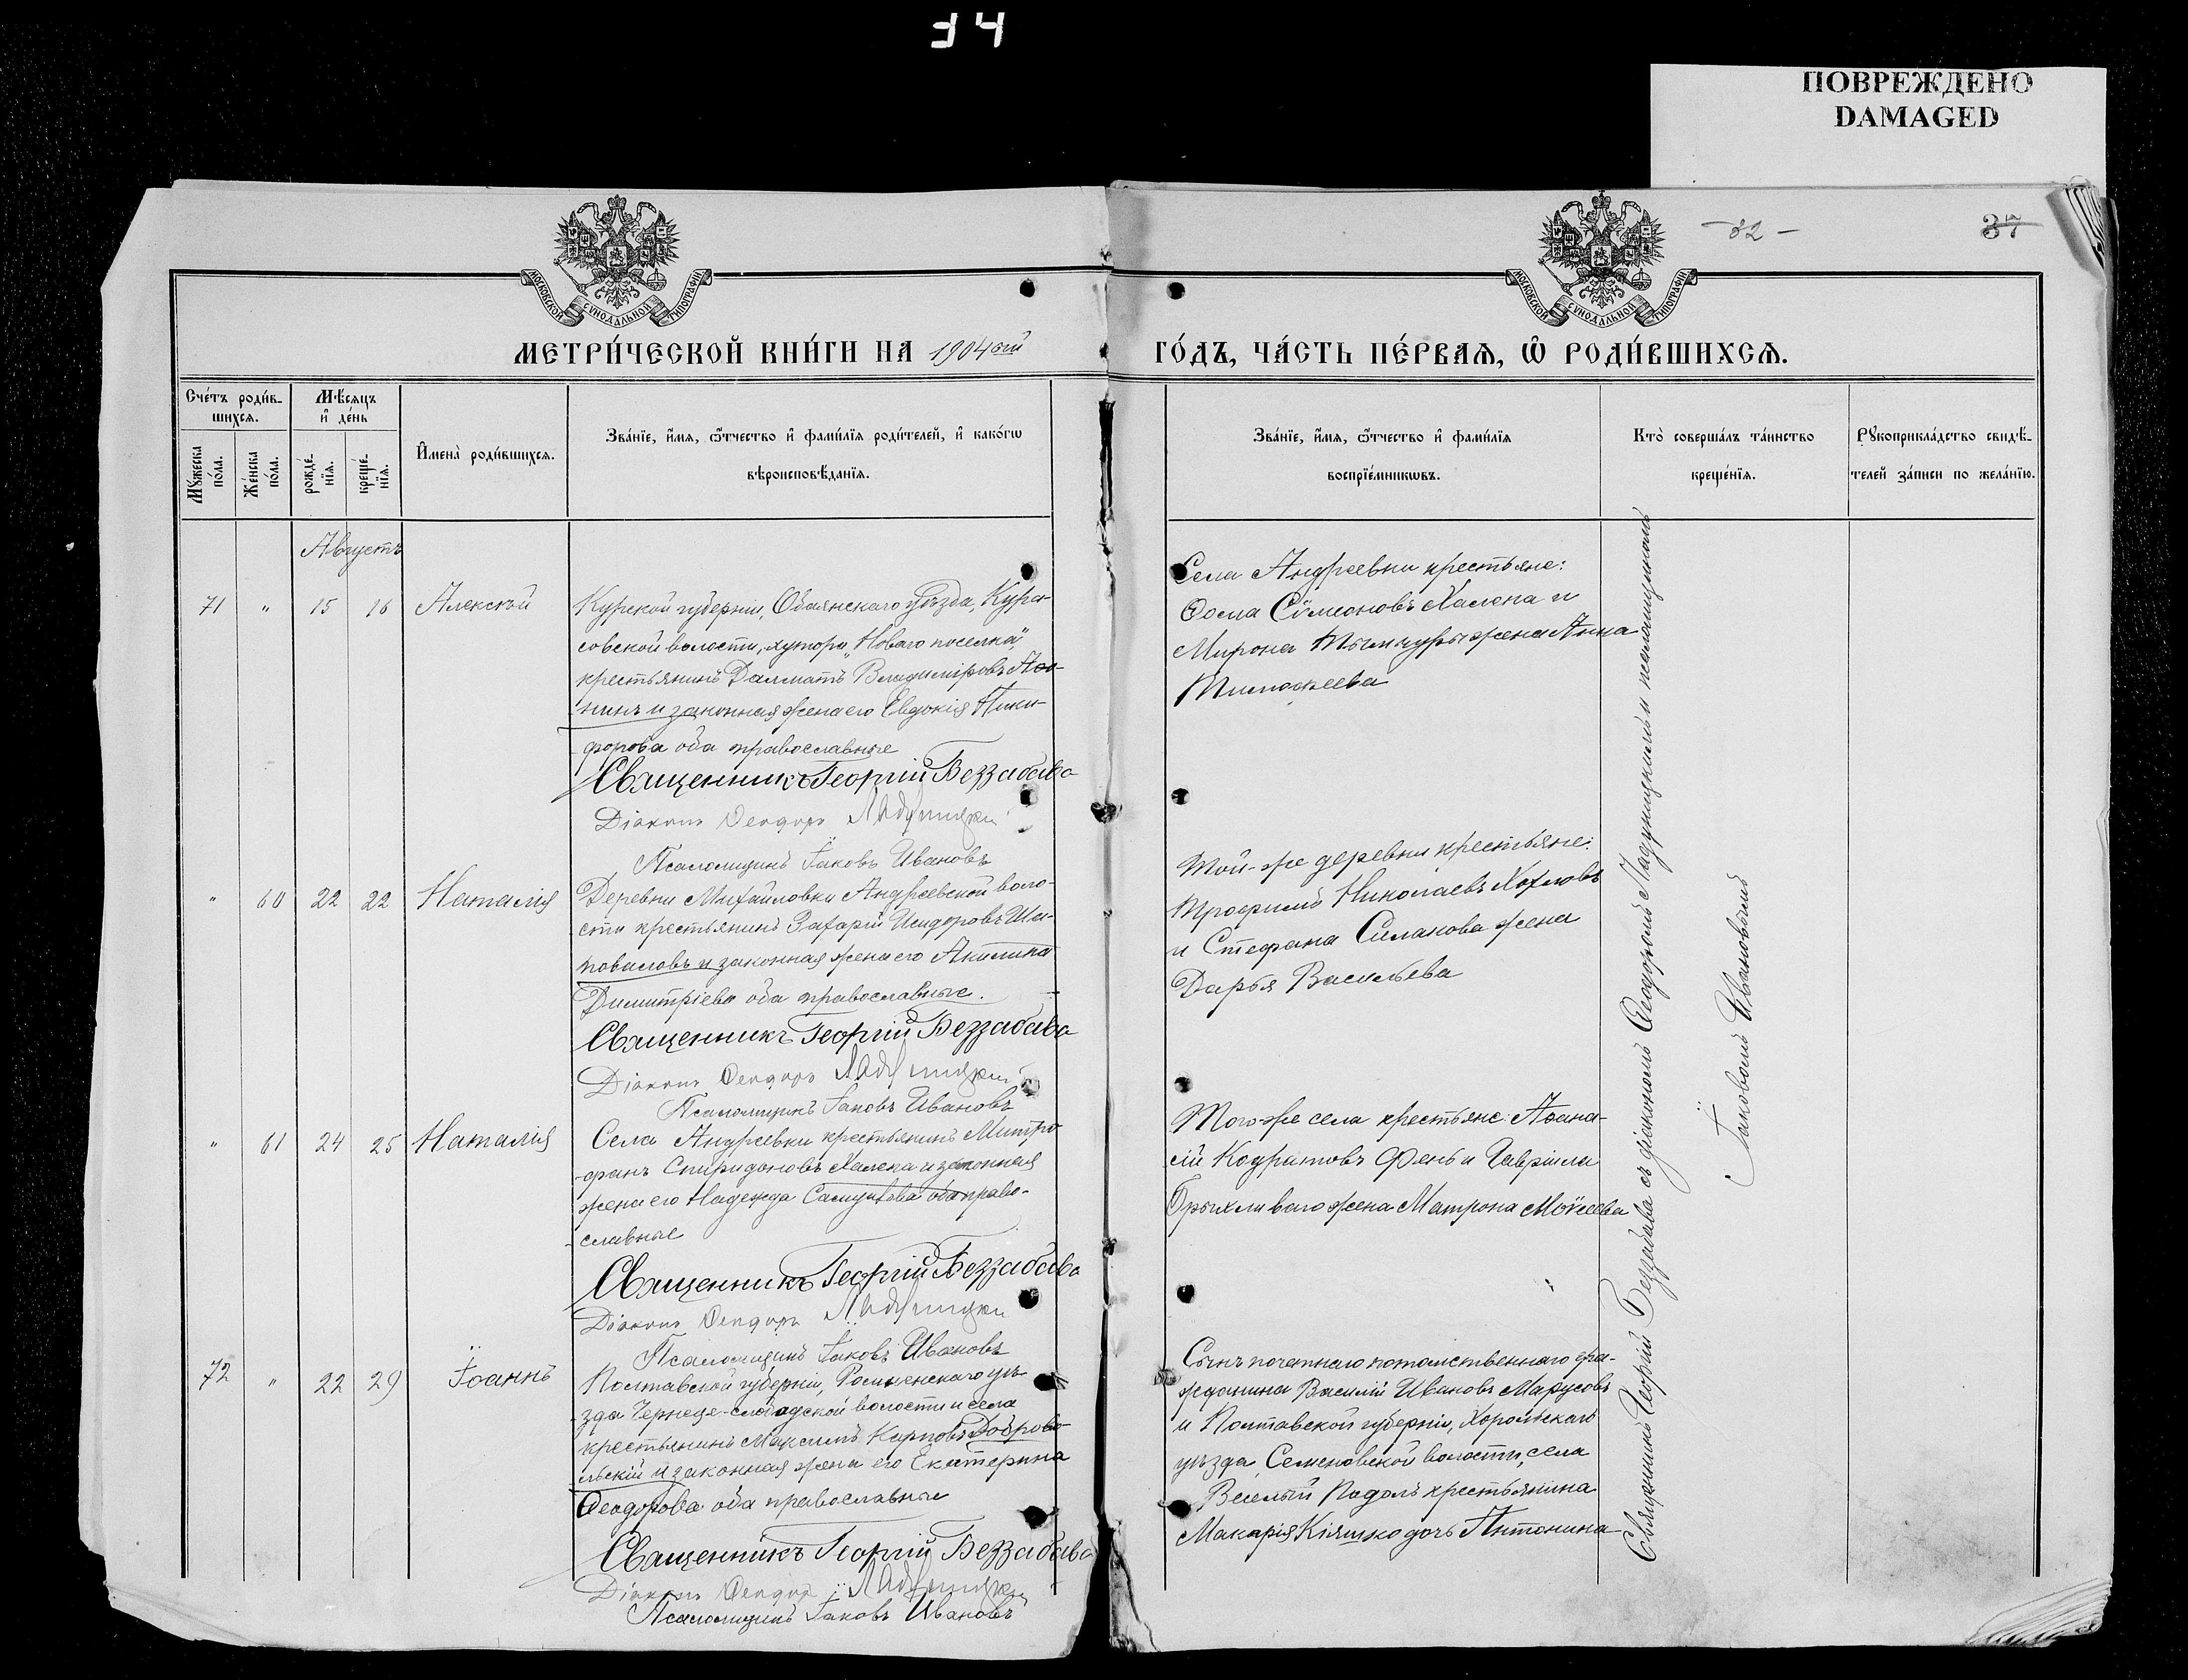 34
ПОВРЕЖДЕНО
DAMAGED
МОСКОВСКОЙ СУНОДАЛЬНОЙ ТИПОГРАФІИ
МОСКОВСКОЙ СУНОДАЛЬНОЙ ТИПОГРАФІИ
- 32 -
37
МЕТРИ́ЧЕСКОЙ КНИ́ГИ НА 1904ый
ГО́ДЪ, ЧА́СТЬ ПЕ́РВАѦ, Ѡ҆ РОДИ́ВШИХСѦ.
Сче́тъ роди́в-
шихсѧ.
Мѣ́сѧцъ
и҆ де́нь
Мꙋ́жеска
по́ла.
Же́нска
по́ла.
рожде́-
нїѧ.
креще́-
нїѧ.
И҆мена̀ роди́вшихсѧ.
Зва́нїе, и҆́мѧ, ѻ҆́тчество и҆ фами́лїѧ роди́телей, и҆ како́гѡ
вѣроисповѣ́данїѧ.
Зва́нїе, и҆́мѧ, ѻ҆́тчество и҆ фами́лїѧ
воспрїе́мникѡвъ.
Кто̀ соверша́лъ та́инство
креще́нїѧ.
Рꙋкоприкла́дство свидѣ́-
телей за́писи по жела́нїю.
Августъ
71 " 15 16 Алексѣй
Курской губерніи, Обоянскаго уѣзда, Кура-
совской волости, хутора "Новаго поселка",
крестьянинъ Далматъ Владиміровъ
и законная жена его Евдокія Ники-
форова оба православные
Священникъ Георгій Беззабава
Діаконъ Ѳеодоръ Ладушицкій
Псаломщикъ Іаковъ Ивановъ
Села Андреевки крестьяне:
Ѳома Сѵмеоновъ Халена и
Мирона жена Анна
Тимоѳеева
" 60 22 22 Наталія
Деревни Михайловки Андреевской воло-
сти крестьянинъ Захарій Исидоровъ Ша-
поваловъ и законная жена его Акилина
Димитріева оба православные.
Священникъ Георгій Беззабава
Діаконъ Ѳеодоръ Ладушицкій
Псаломщикъ Іаковъ Ивановъ
Той-же деревни крестьяне:
Трофимъ Николаевъ Хохловъ
и Стефана Силакова жена
Дарья Васильева
" 61 24 25 Наталія
Села Андреевки крестьянинъ Митро-
фанъ Спиридоновъ Халена и законная
жена его Надежда оба право-
славные
Священникъ Георгій Беззабава
Діаконъ Ѳеодоръ Ладушицкій
Псаломщикъ Іаковъ Ивановъ
Того-же села крестьяне: Аѳана-
сій Кодратовъ Фень и Гавріила
Брыхливаго жена Матрона Моѵсеева
72 " 22 29 Іоаннъ
Полтавской губерніи, Роменскаго уѣ-
зда Чернече-слободской волости и села
крестьянинъ Максимъ Карповъ Доброво-
льскій и законная жена его Екатерина
Ѳеодорова оба православные
Священникъ Георгій Беззабава
Діаконъ Ѳеодоръ Ладушицкій
Псаломщикъ Іаковъ Ивановъ
Сынъ почетнаго потомственнаго гра-
жданина Василій Ивановъ Марусовъ
и Полтавской губерніи, Хорольскаго
уѣзда Семеновской волости, села
Веселый Подолъ крестьянина
Макарія Кіяшко дочь Антонина
Священникъ Георгій Беззабава съ діакономъ Ѳеодоромъ Ладушицкимъ и псаломщикомъ
Іаковомъ Ивановымъ